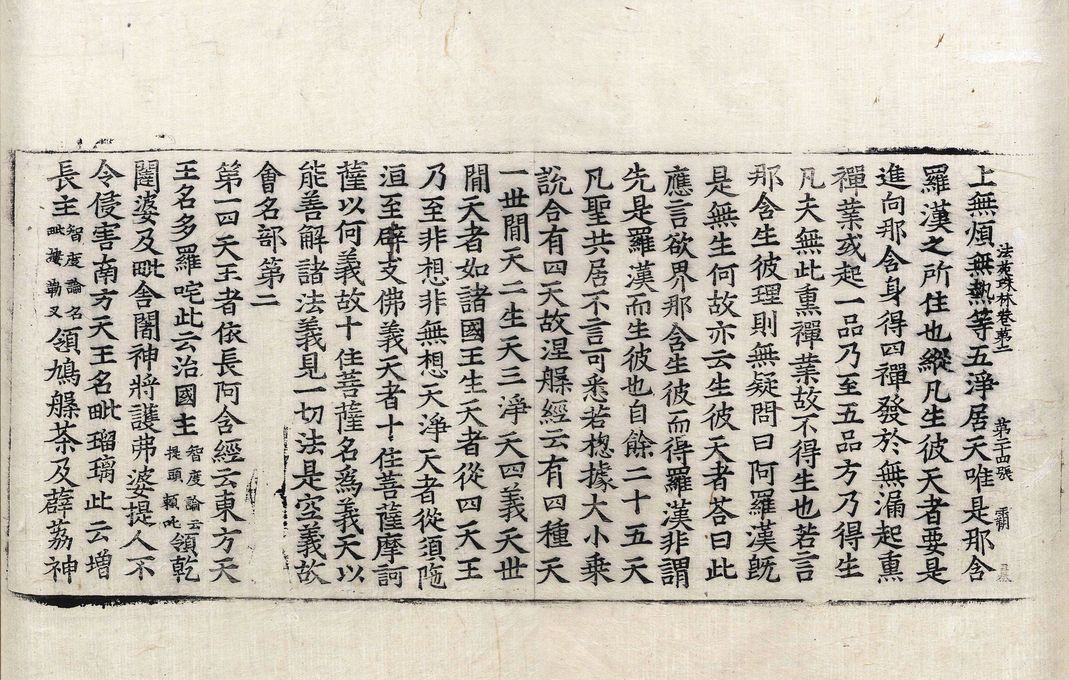 上無煩無熱等五淨居天唯是那含
法苑珠林卷第二　第二十四張　覇
羅漢之所住也縱凡生彼天者要是
進向那含身得四禪發於無漏起熏
禪業或起一品乃至五品方乃得生
凡夫無此熏禪業故不得生也若言
那含生彼理則無疑問曰阿羅漢旣
是無生何故亦云生彼天者荅曰此
應言欲界那含生彼而得羅漢非謂
先是羅漢而生彼也自餘二十五天
凡聖共居不言可悉若揔據大小乗
說合有四天故涅槃經云有四種天
一世閒天二生天三淨天四義天世
閒天者如諸國王生天者從四天王
乃至非想非無想天淨天者從須陁
洹至辟支佛義天者十住菩薩摩訶
薩以何義故十住菩薩名爲義天以
能善解諸法義見一切法是空義故
會名部第二
第一四天王者依長阿含經云東方天
王名多羅咤此云治國主智度論云提頭頼吒領乾
闥婆及毗舍闍神將護弗婆提人不
令侵害南方天王名毗瑠璃此云增
長主智度論名毗摟勒叉領鳩槃茶及薜荔神